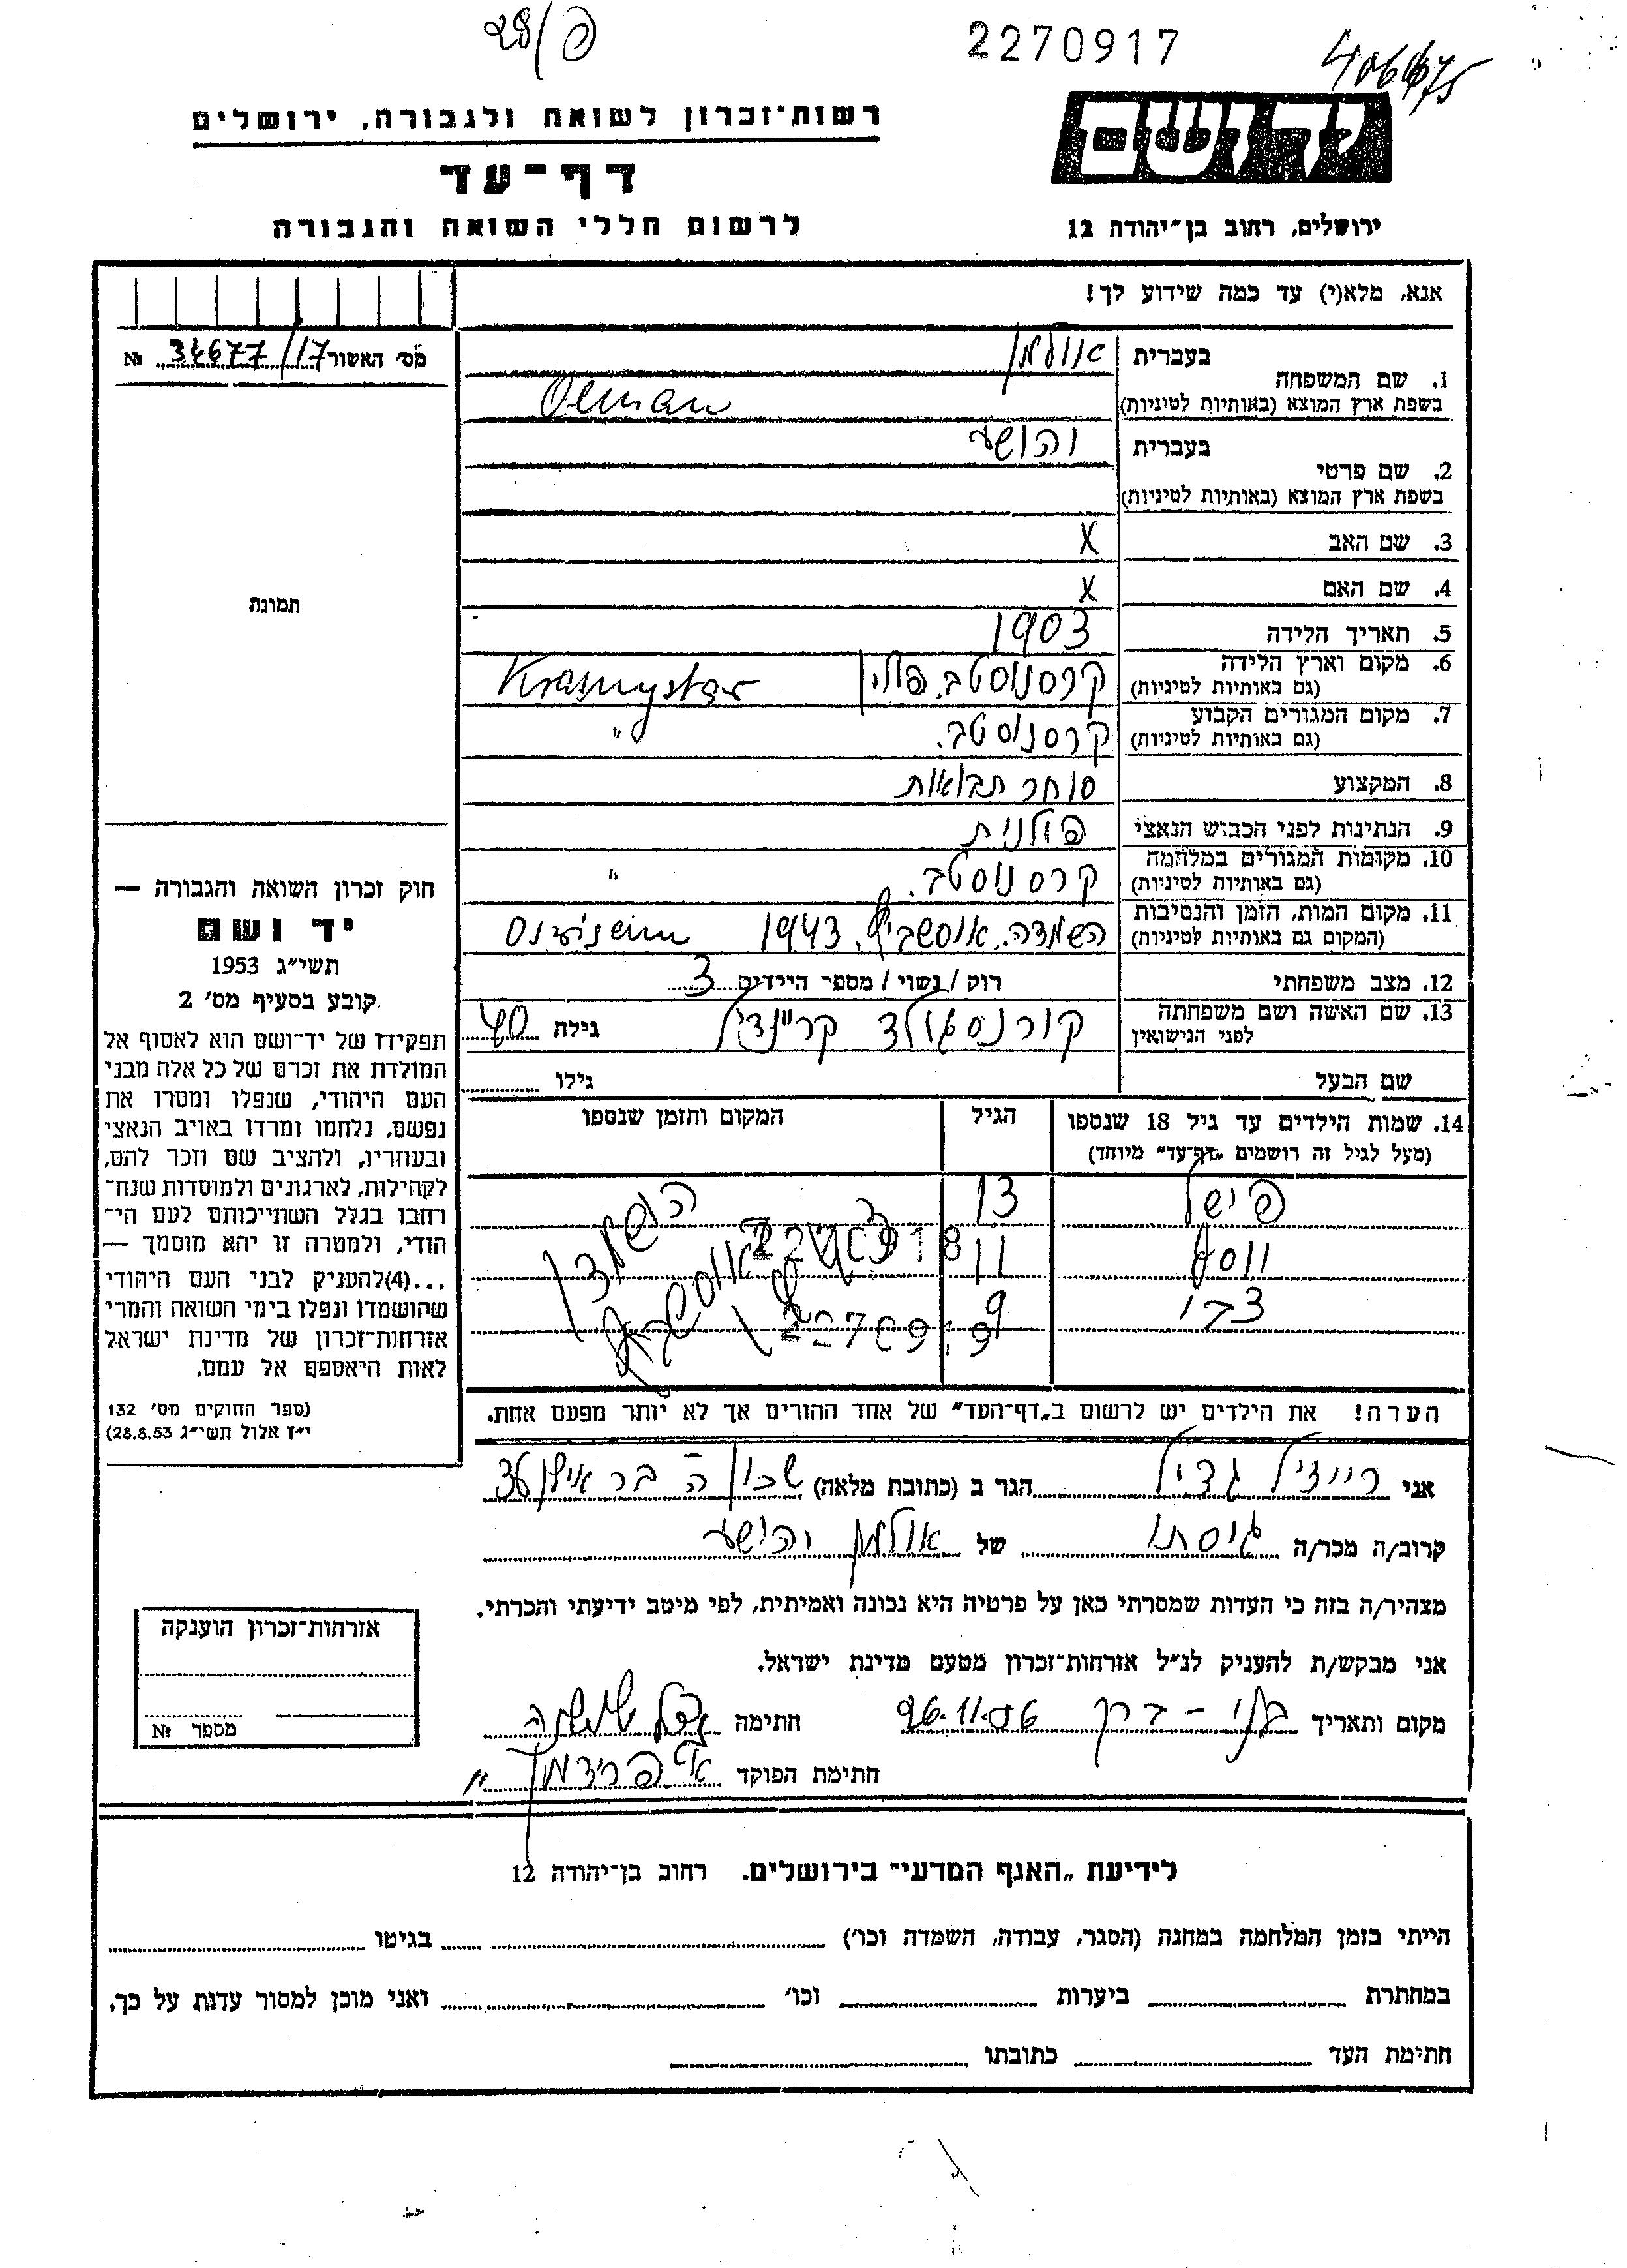 28/פ
2270917
406675
רשות־זכרון לשואה ולגבורה, ירושלים
יד ושם
דף־עד
לרשום חללי השואה והגבורה
ירושלים, רחוב בן־יהודה 12
אנא, מלא(י) עד כמה שידוע לך!
מס' האשור 34677/17 №
1. שם המשפחה
בעברית אולמן
בשפת ארץ המוצא (באותיות לטיניות) Olman
2. שם פרטי
בעברית יהושע
בשפת ארץ המוצא (באותיות לטיניות)
3. שם האב X
4. שם האם X
5. תאריך הלידה 1903
6. מקום וארץ הלידה קרסנוסטב. פולין
(גם באותיות לטיניות) Krasnystaw
7. מקום המגורים הקבוע קרסנוסטב. "
(גם באותיות לטיניות)
8. המקצוע סוחר תבואות
9. הנתינות לפני הכבוש הנאצי פולנית
10. מקומות המגורים במלחמה קרסנוסטב. "
(גם באותיות לטיניות)
11. מקום המות, הזמן והנסיבות השמדה. אוסשביץ. 1943
(המקום גם באותיות לטיניות)
12. מצב משפחתי רוק / נשוי / מספר הילדים 3
13. שם האשה ושם משפחתה קורנסגולד קריינדיל גילה 40
לפני הנישואין
שם הבעל גילו
14. שמות הילדים עד גיל 18 שנספו הגיל המקום והזמן שנספו
(מעל לגיל זה רושמים „דף־עד" מיוחד)
פישל 13
יוסף 11 2270918
צבי 9 2270919
הערה! את הילדים יש לרשום ב„דף־העד" של אחד ההורים אך לא יותר מפעם אחת.
תמונה
חוק זכרון השואה והגבורה —
יד ושם
תשי״ג 1953
קובע בסעיף מס' 2
תפקידו של יד־ושם הוא לאסוף אל
המולדת את זכרם של כל אלה מבני
העם היהודי, שנפלו ומסרו את
נפשם, נלחמו ומרדו באויב הנאצי
ובעוזריו, ולהציב שם וזכר להם,
לקהילות, לארגונים ולמוסדות שנח־
רחבו בגלל השתייכותם לעם הי־
הודי, ולמטרה זו יהא מוסמך —
...(4)להעניק לבני העם היהודי
שהושמדו ונפלו בימי השואה והמרי
אזרחות־זכרון של מדינת ישראל
לאות היאספם אל עמם.
(ספר החוקים מס' 132
י״ז אלול תשי״ג 28.8.53)
אני רייזיל גדיל הגר ב (כתובת מלאה) שכון ה בר אילן
קרוב/ה מכר/ה גיסתו של אולמן יהושע
מצהיר/ה בזה כי העדות שמסרתי כאן על פרטיה היא נכונה ואמיתית, לפי מיטב ידיעתי והכרתי.
אני מבקש/ת להעניק לנ״ל אזרחות־זכרון מטעם מדינת ישראל.
מקום ותאריך בני-ברק 26.11.56 חתימה
חתימת הפוקד א. פרידמן
אזרחות־זכרון הוענקה
מספר №
לידיעת „האגף המדעי" בירושלים. רחוב בן־יהודה 12
הייתי בזמן המלחמה במחנה (הסגר, עבודה, השמדה וכו') בגיטו
במחתרת ביערות וכו' ואני מוכן למסור עדות על כך.
חתימת העד כתובתו